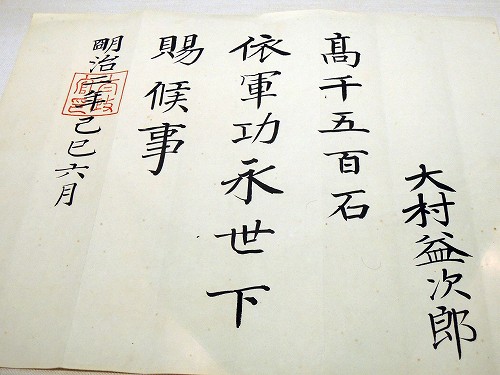 大村益次郎
高千五百石
依軍功永世下
賜候事
明治二年己巳六月